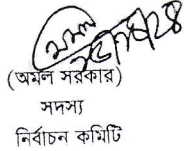 (অমল সরকার)
সদস্য
নির্বাচন কমিটি